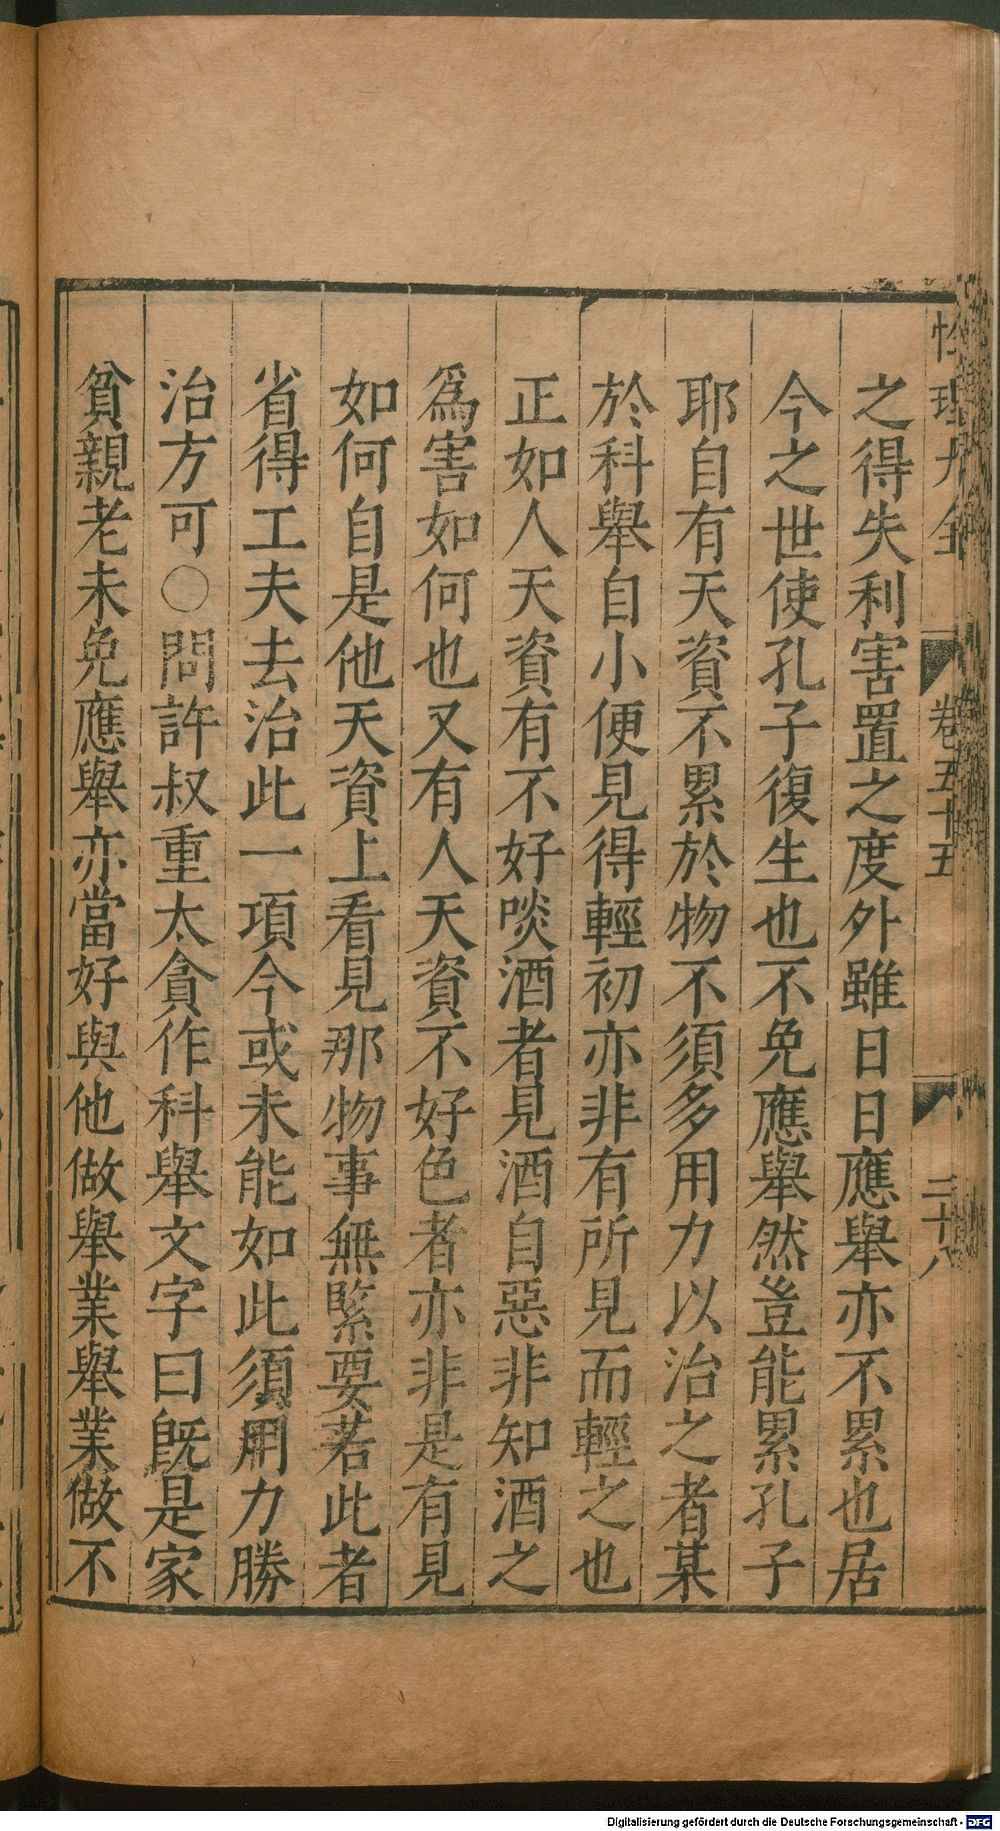 性理大全
卷五十五
三十八
之得失利害置之度外雖日日應舉亦不累也居
今之世使孔子復生也不免應舉然豈能累孔子
耶自有天資不累於物不須多用力以治之者某
於科舉自小便見得輕初亦非有所見而輕之也
正如人天資有不好啖酒者見酒自惡非知酒之
爲害如何也又有人天資不好色者亦非是有見
如何自是他天資上看見那物事無緊要若此者
省得工夫去治此一項今或未能如此須用力勝
治方可○問許叔重太貪作科舉文字曰旣是家
貧親老未免應舉亦當好與他做舉業舉業做不
Digitalisierung gefördert durch die Deutsche Forschungsgemeinschaft - DFG